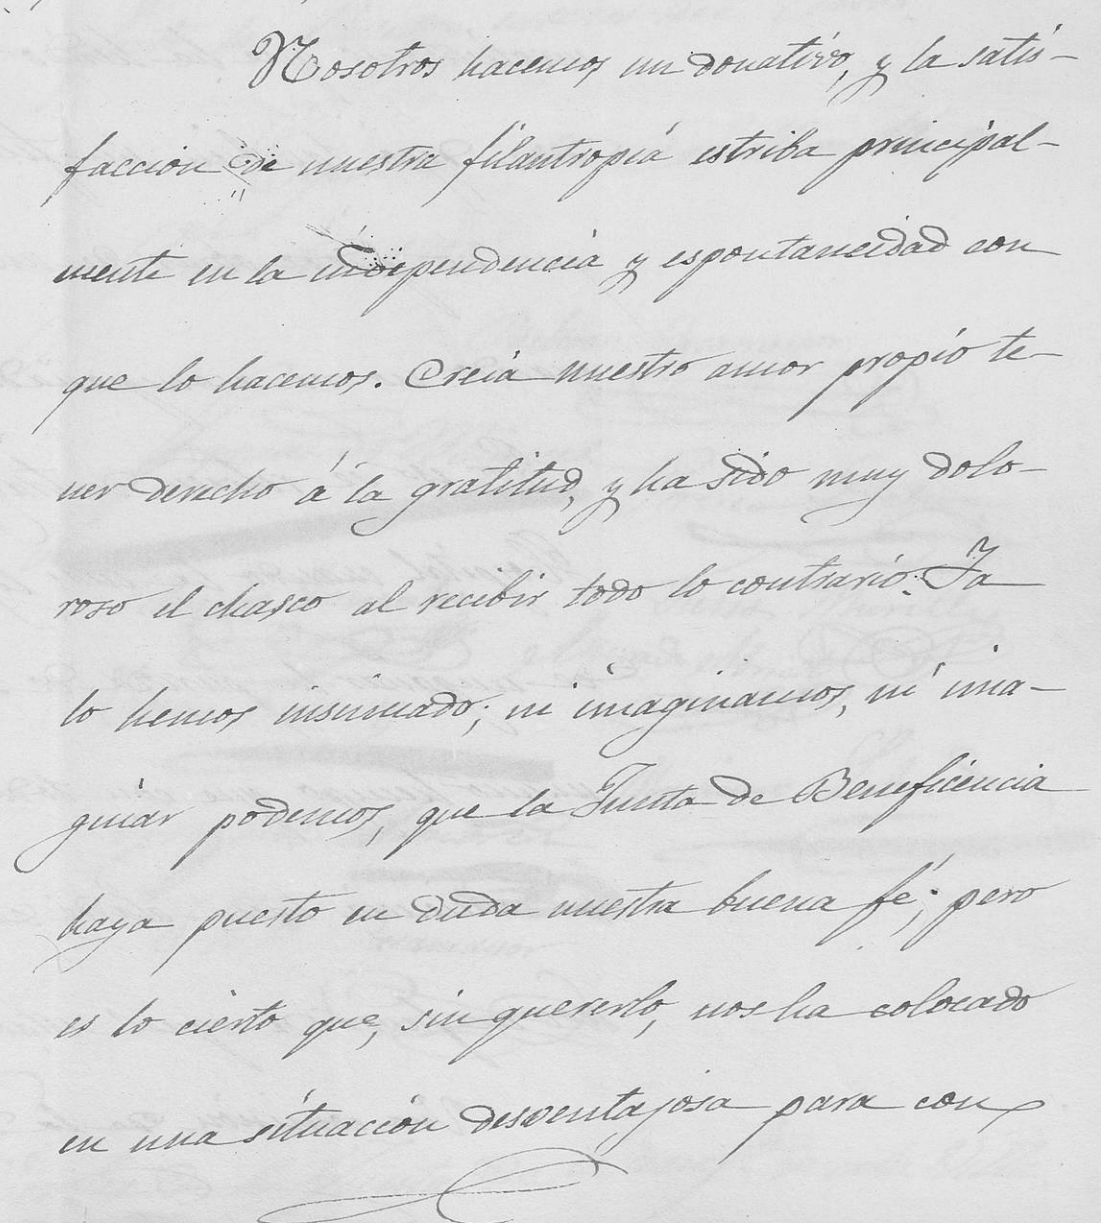 Nosotros hacemos un donativo, y la satis-
facción de nuestra filantropia estriba principal-
mente en la independencia y espontaneidad con
que lo hacemos. Creia nuestro amor propio te-
ner derecho á la gratitud, y ha sido muy dolo-
roso el chasco al recibir todo lo contrario. Ya
lo hemos insinuado; ni imaginamos, ni ima-
ginar podemos, que la Junta de Beneficencia
haya puesto en duda nuestra buena fé; pero
es lo cierto que, sin quererlo, nos ha colocado
en una situación desventajosa para con